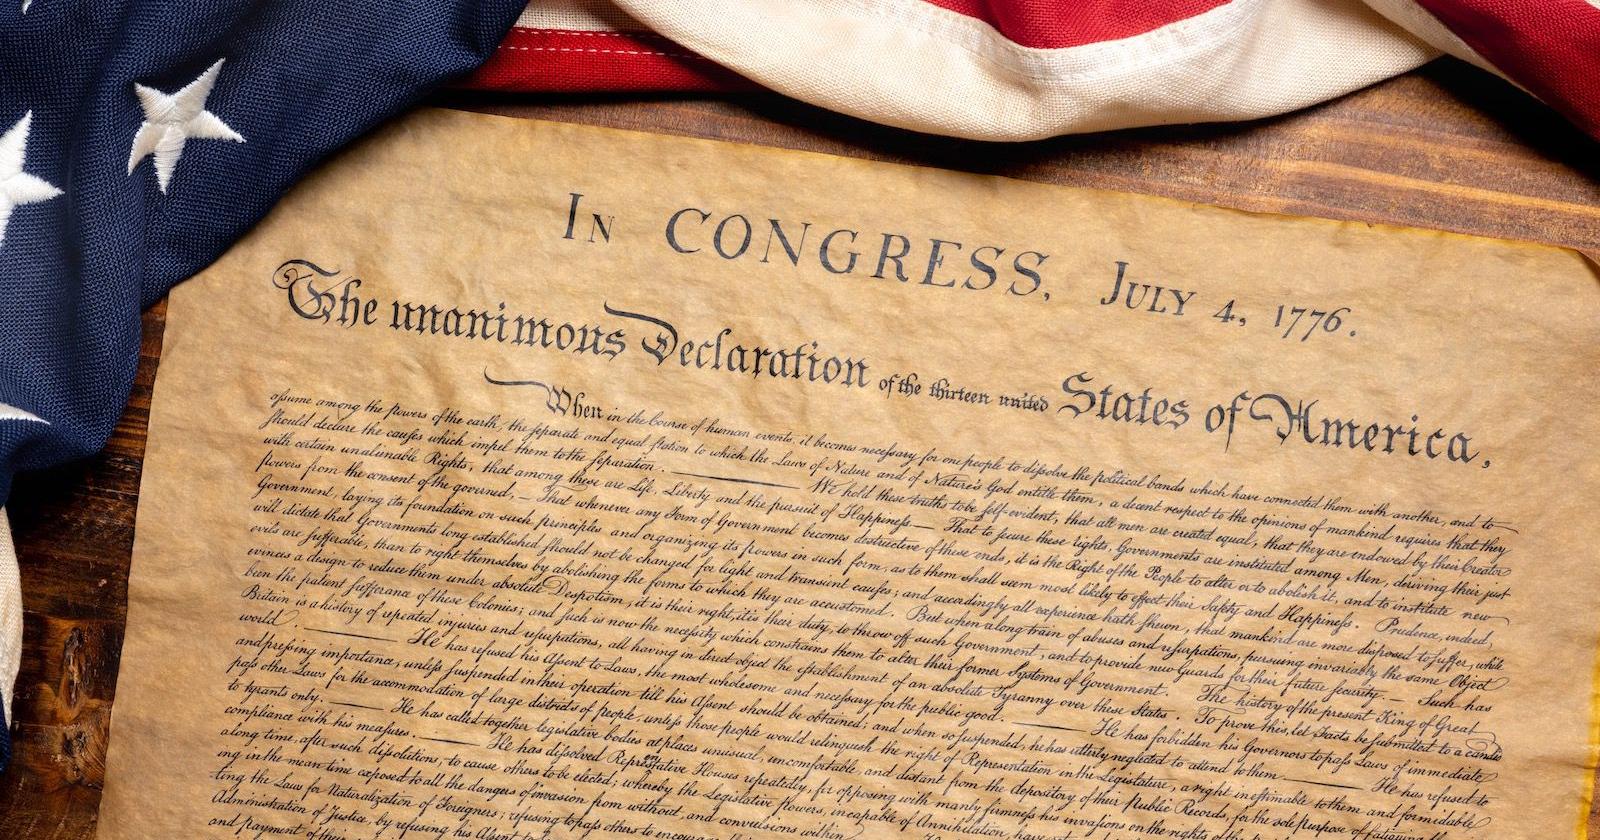 In CONGRESS, July 4, 1776.
The unanimous Declaration of the thirteen united States of America,
When in the Course of human events, it becomes necessary for one people to dissolve the political bands which have connected them with another, and to
assume among the powers of the earth, the separate and equal station to which the Laws of Nature and of Nature's God entitle them, a decent respect to the opinions of mankind requires that they
should declare the causes which impel them to the separation. — We hold these truths to be self-evident, that all men are created equal, that they are endowed by their Creator
with certain unalienable Rights, that among these are Life, Liberty and the pursuit of Happiness — That to secure these rights, Governments are instituted among Men, deriving their just
powers from the consent of the governed, — That whenever any Form of Government becomes destructive of these ends, it is the Right of the People to alter or to abolish it, and to institute new
Government, laying its foundation on such principles and organizing its powers in such form, as to them shall seem most likely to effect their Safety and Happiness. Prudence, indeed,
will dictate that Governments long established should not be changed for light and transient causes; and accordingly all experience hath shewn, that mankind are more disposed to suffer, while
evils are sufferable, than to right themselves by abolishing the forms to which they are accustomed. But when a long train of abuses and usurpations, pursuing invariably the same Object
evinces a design to reduce them under absolute Despotism, it is their right, it is their duty, to throw off such Government, and to provide new Guards for their future security. — Such has
been the patient sufferance of these Colonies; and such is now the necessity which constrains them to alter their former Systems of Government. The history of the present King of Great
Britain is a history of repeated injuries and usurpations, all having in direct object the establishment of an absolute Tyranny over these States. To prove this, let Facts be submitted to a candid
world. — He has refused his Assent to Laws, the most wholesome and necessary for the public good. — He has forbidden his Governors to pass Laws of immediate
and pressing importance, unless suspended in their operation till his Assent should be obtained; and when so suspended, he has utterly neglected to attend to them. — He has refused to
pass other Laws for the accommodation of large districts of people, unless those people would relinquish the right of Representation in the Legislature, a right inestimable to them and formidable
to tyrants only. — He has called together legislative bodies at places unusual, uncomfortable, and distant from the depository of their Public Records, for the sole purpose of fatiguing
compliance with his measures. — He has dissolved Representative Houses repeatedly, for opposing with manly firmness his invasions on the rights of the
a long time, after such dissolutions, to cause others to be elected; whereby the Legislative powers, incapable of Annihilation, have
ing in the mean time exposed to all the dangers of invasion from without, and convulsions within
ting the Laws for Naturalization of Foreigners; refusing to pass others to
Administration of Justice, by refusing his Assent to
and payment of their